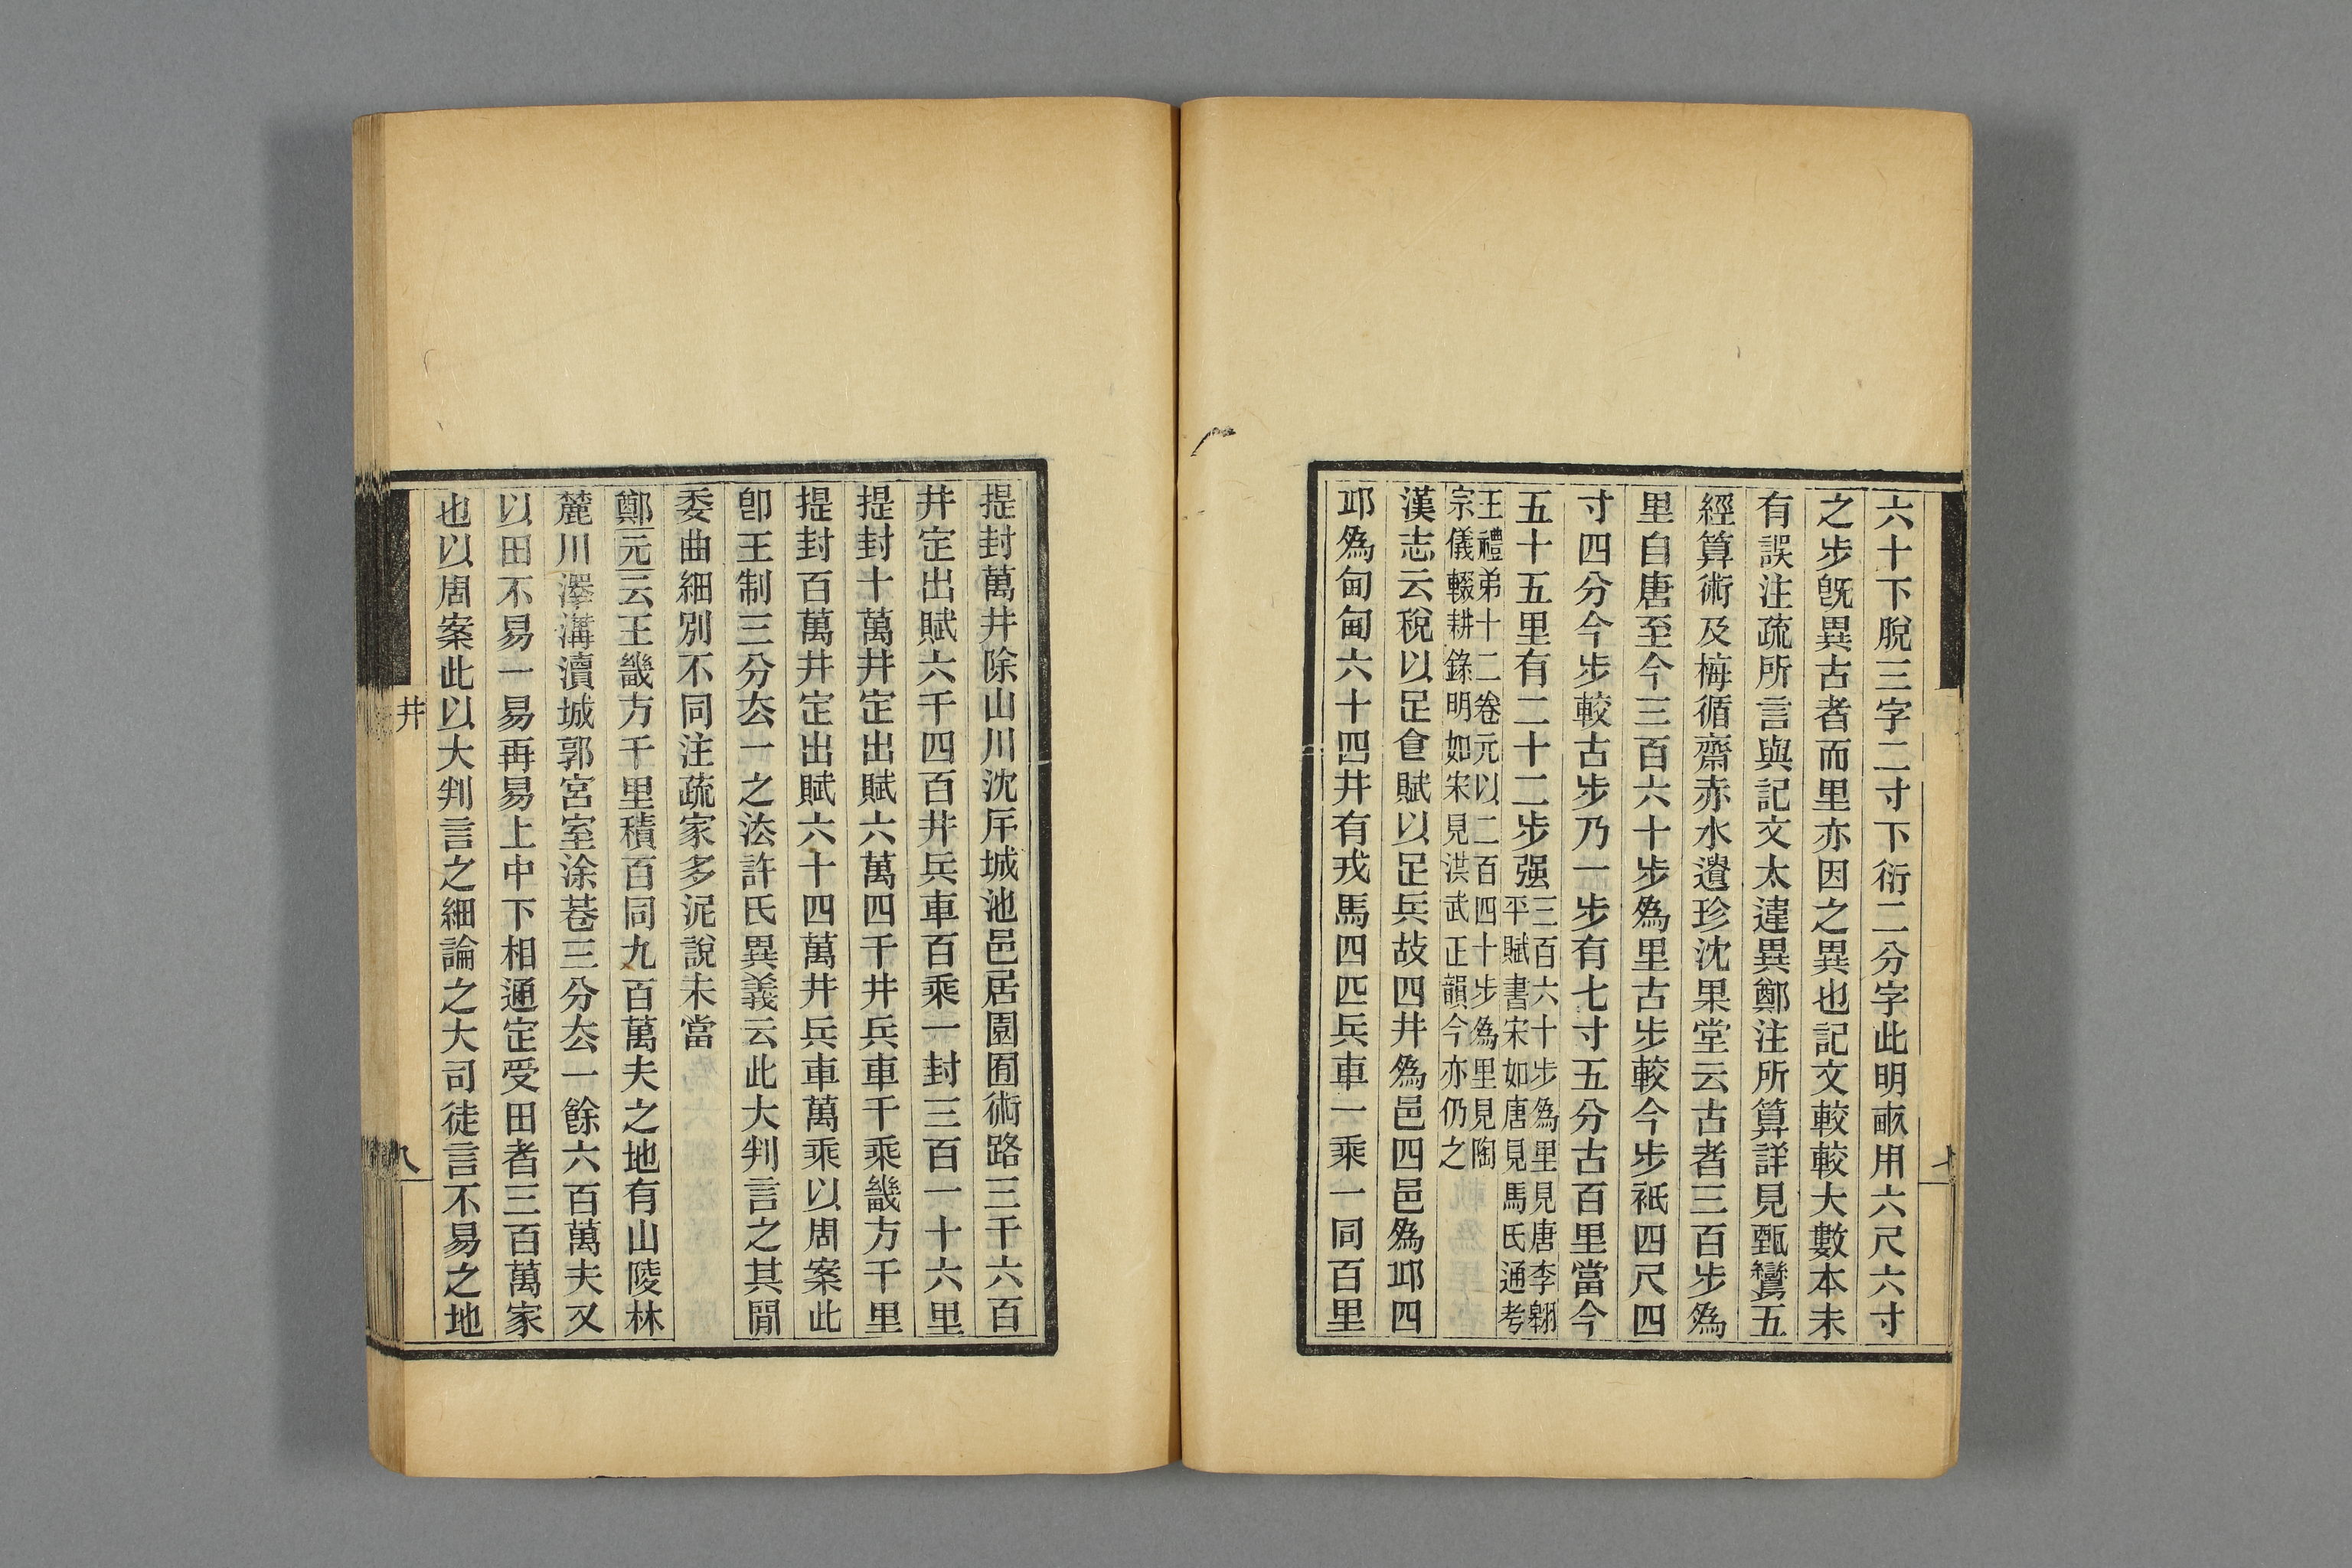 六十下脫三字二寸下衍二分字此明畮用六尺六寸
之步旣異古者而里亦因之異也記文較較大數本未
有誤注疏所言與記文太違異鄭注所算詳見甄鸞五
經算術及梅循齋赤水遺珍沈果堂云古者三百步爲
里自唐至今三百六十步爲里古步較今步衹四尺四
寸四分今步較古步乃一步有七寸五分古百里當今
五十五里有二十二步强三百六十步爲里見唐李翺
平賦書宋如唐見馬氏通考
王禮弟十二卷元以二百四十步爲里見陶
宗儀輟耕錄明如宋見洪武正韻今亦仍之
漢志云稅以足食賦以足兵故四井爲邑四邑爲邱四
邱爲甸甸六十四井有戎馬四匹兵車一乘一同百里
提封萬井除山川沈斥城池邑居園囿術路三千六百
井定出賦六千四百井兵車百乘一封三百一十六里
提封十萬井定出賦六萬四千井兵車千乘畿方千里
提封百萬井定出賦六十四萬井兵車萬乘以周案此
卽王制三分厺一之法許氏異義云此大判言之其閒
委曲細別不同注疏家多泥說未當
鄭元云王畿方千里積百同九百萬夫之地有山陵林
麓川澤溝瀆城郭宮室涂巷三分厺一餘六百萬夫又
以田不易一易再易上中下相通定受田者三百萬家
也以周案此以大判言之細論之大司徒言不易之地
井
八